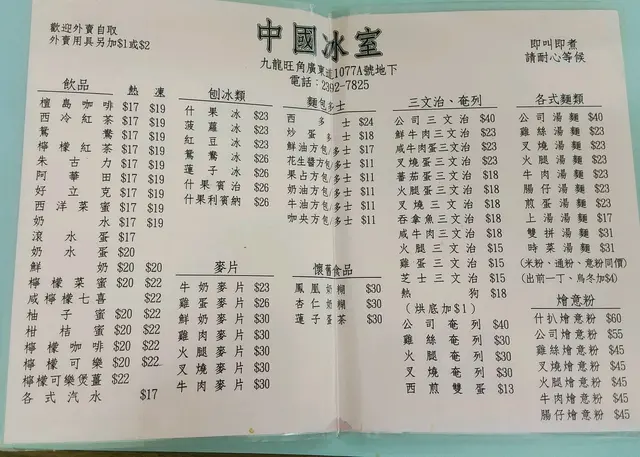 歡迎外賣自取
外賣用具另加$1或$2
中國冰室
九龍旺角廣東道1077A號地下
電話：2392-7825
即叫即煮
請耐心等候
飲品 熱 凍
檀島咖啡 $17 $19
西冷紅茶 $17 $19
鴛鴦 $17 $19
檸檬紅茶 $17 $19
朱古力 $17 $19
阿華田 $17 $19
好立克 $17 $19
西洋菜蜜 $17 $19
奶水 $17 $19
滾水蛋 $17
奶水蛋 $20
鮮奶 $20 $20
檸檬菜蜜 $20 $22
咸檸檬七喜 $22
柚子蜜 $20 $22
柑桔蜜 $20 $22
檸檬咖啡 $20 $22
檸檬可樂 $20 $22
檸檬可樂煲薑 $22
各式汽水 $17
刨冰類
什果冰 $23
菠蘿冰 $23
紅豆冰 $23
鴛鴦冰 $26
蓮子冰 $26
什果賓治 $26
什果利賓納 $26
麥片
牛奶麥片 $23
雞蛋麥片 $26
鮮奶麥片 $30
雞肉麥片 $30
火腿麥片 $30
叉燒麥片 $30
牛肉麥片 $30
麵包多士
西多士 $24
炒蛋多士 $18
鮮油方包/多士 $17
花生醬方包/多士 $11
果占方包/多士 $11
奶油方包/多士 $11
牛油方包/多士 $11
咖央方包/多士 $11
懷舊食品
鳳凰奶糊 $30
杏仁奶糊 $30
蓮子蛋茶 $30
三文治、奄列
公司三文治 $40
鮮牛肉三文治 $23
咸牛肉蛋三文治 $23
叉燒蛋三文治 $23
蕃茄蛋三文治 $18
火腿蛋三文治 $18
叉燒三文治 $18
吞拿魚三文治 $18
咸牛肉三文治 $18
火腿三文治 $15
雞蛋三文治 $15
芝士三文治 $15
熱狗 $18
(烘底加$1)
公司奄列 $40
雞絲奄列 $30
火腿奄列 $30
叉燒奄列 $30
西煎雙蛋 $13
各式麵類
公司湯麵 $40
雞絲湯麵 $23
叉燒湯麵 $23
火腿湯麵 $23
牛肉湯麵 $23
腸仔湯麵 $23
煎蛋湯麵 $23
上湯湯麵 $17
雙拼湯麵 $31
時菜湯麵 $31
(米粉、通粉、意粉同價)
(出前一丁、烏冬加$4)
燴意粉
什扒燴意粉 $60
公司燴意粉 $55
雞絲燴意粉 $45
叉燒燴意粉 $45
火腿燴意粉 $45
牛肉燴意粉 $45
腸仔燴意粉 $45